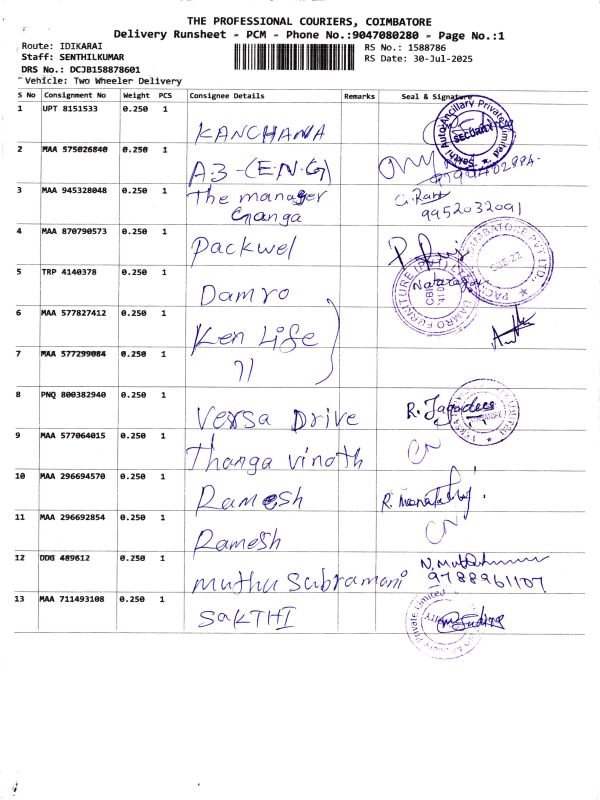 THE PROFESSIONAL COURIERS, COIMBATORE
Delivery Runsheet - PCM - Phone No.:9047080280 - Page No.:1
Route: IDIKARAI RS No.: 1588786
Staff: SENTHILKUMAR RS Date: 30-Jul-2025
DRS No.: DCJB158878601
Vehicle: Two Wheeler Delivery
S No Consignment No Weight PCS Consignee Details Remarks Seal & Signature
1 UPT 8151533 0.250 1
KANCHANA
SECURITY
2 MAA 575026840 0.250 1
A3-(E.N.G)
3 MAA 945328048 0.250 1
The manager G.Rani
Ganga 9952032091
4 MAA 870790573 0.250 1
Packwel
5 TRP 4140378 0.250 1
Damro Natarajan
DAMRO FURNITURE (PVT) LTD
6 MAA 577827412 0.250 1
Ken Life
7 MAA 577299084 0.250 1
11
8 PNQ 800382940 0.250 1
Versa Drive R. Jagadees
9 MAA 577064015 0.250 1
Thanga vinoth CN
10 MAA 296694570 0.250 1
Ramesh
11 MAA 296692854 0.250 1
Ramesh CN
12 DDG 489612 0.250 1
Muthu Subramani 9788961107
13 MAA 711493108 0.250 1
SAKTHI